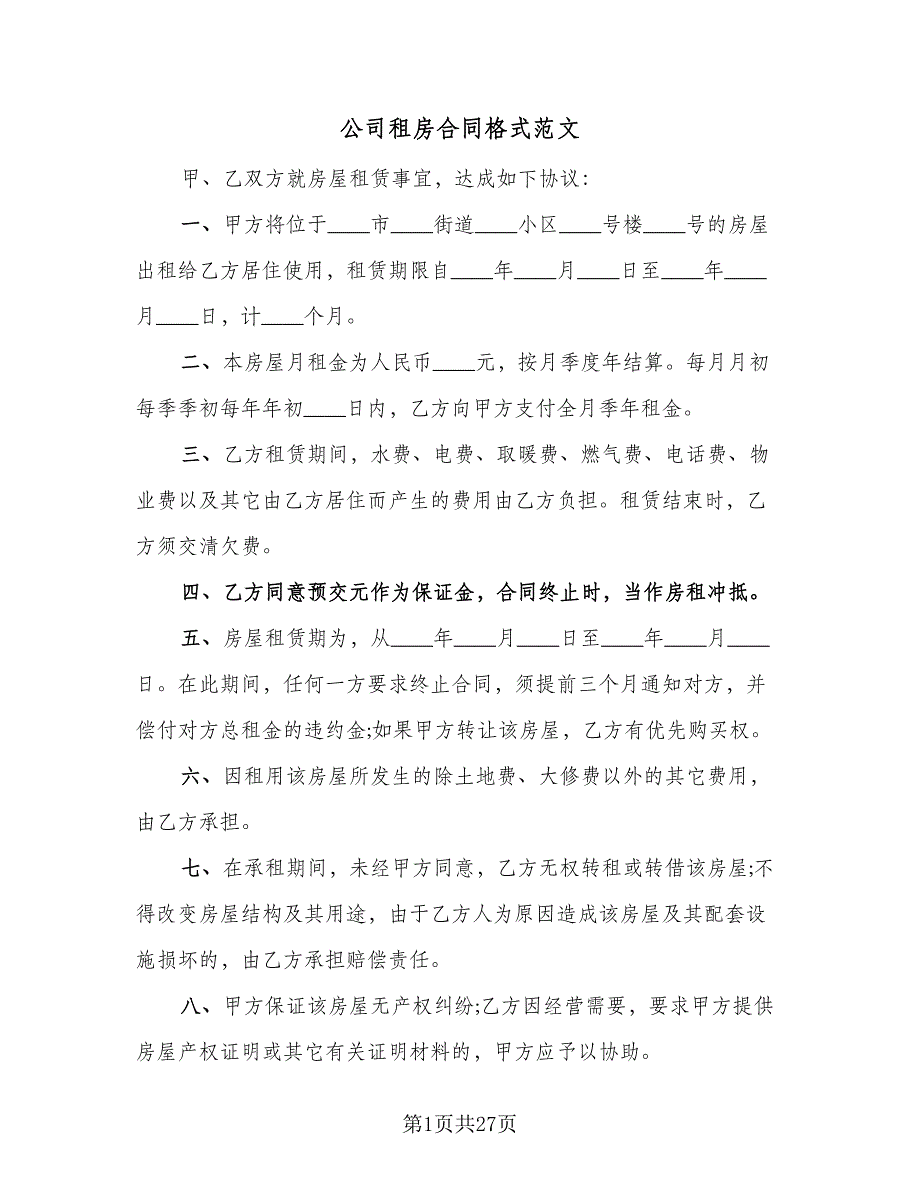 公司租房合同格式范文
甲、乙双方就房屋租赁事宜，达成如下协议：
一、甲方将位于____市____街道____小区____号楼____号的房屋
出租给乙方居住使用，租赁期限自____年____月____日至____年____
月____日，计____个月。
二、本房屋月租金为人民币____元，按月季度年结算。每月月初
每季季初每年年初____日内，乙方向甲方支付全月季年租金。
三、乙方租赁期间，水费、电费、取暖费、燃气费、电话费、物
业费以及其它由乙方居住而产生的费用由乙方负担。租赁结束时，乙
方须交清欠费。
四、乙方同意预交元作为保证金，合同终止时，当作房租冲抵。
五、房屋租赁期为，从____年____月____日至____年____月____
日。在此期间，任何一方要求终止合同，须提前三个月通知对方，并
偿付对方总租金的违约金;如果甲方转让该房屋，乙方有优先购买权。
六、因租用该房屋所发生的除土地费、大修费以外的其它费用，
由乙方承担。
七、在承租期间，未经甲方同意，乙方无权转租或转借该房屋;不
得改变房屋结构及其用途，由于乙方人为原因造成该房屋及其配套设
施损坏的，由乙方承担赔偿责任。
八、甲方保证该房屋无产权纠纷;乙方因经营需要，要求甲方提供
房屋产权证明或其它有关证明材料的，甲方应予以协助。
第1页共27页